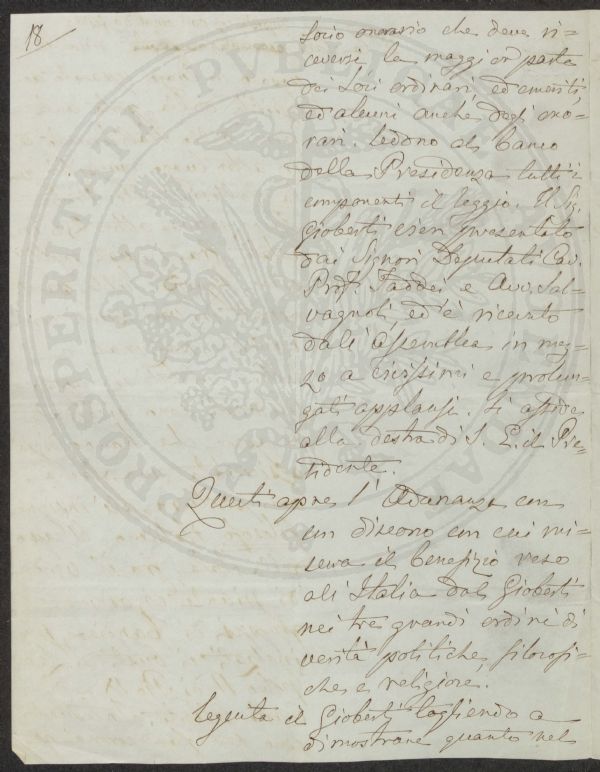 18
Socio onorario che deve ri=
ceversi la maggior parte
dei Soci ordinari, ed emeriti,
ed alcuni anche degli ono=
rari. Sedono al banco
della Presidenza tutti i
componenti il seggio. Il Sig.
Gioberti vien presentato
dai Signori Deputati Cav.
Prof. Taddei e Avv. Sal=
vagnoli ed è ricevuto
dall'Assemblea in mez=
zo a vivissimi e prolun=
gati applausi. Si asside
alla destra di S. E. il Pre=
sidente.
Questi apre l'Adunanza con
un discorso in cui mi=
sura il benefizio reso
all'Italia dal Gioberti
nei tre grandi ordini di
verità politiche, filosofi=
che e religiose.
Seguita il Gioberti togliendo a
dimostrare quanto nel
PROSPERITATI PUBLICAE